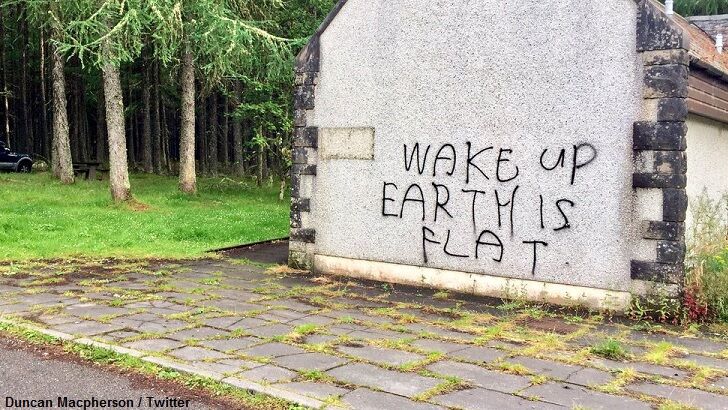 WAKE UP
EARTH IS
FLAT
Duncan Macpherson / Twitter